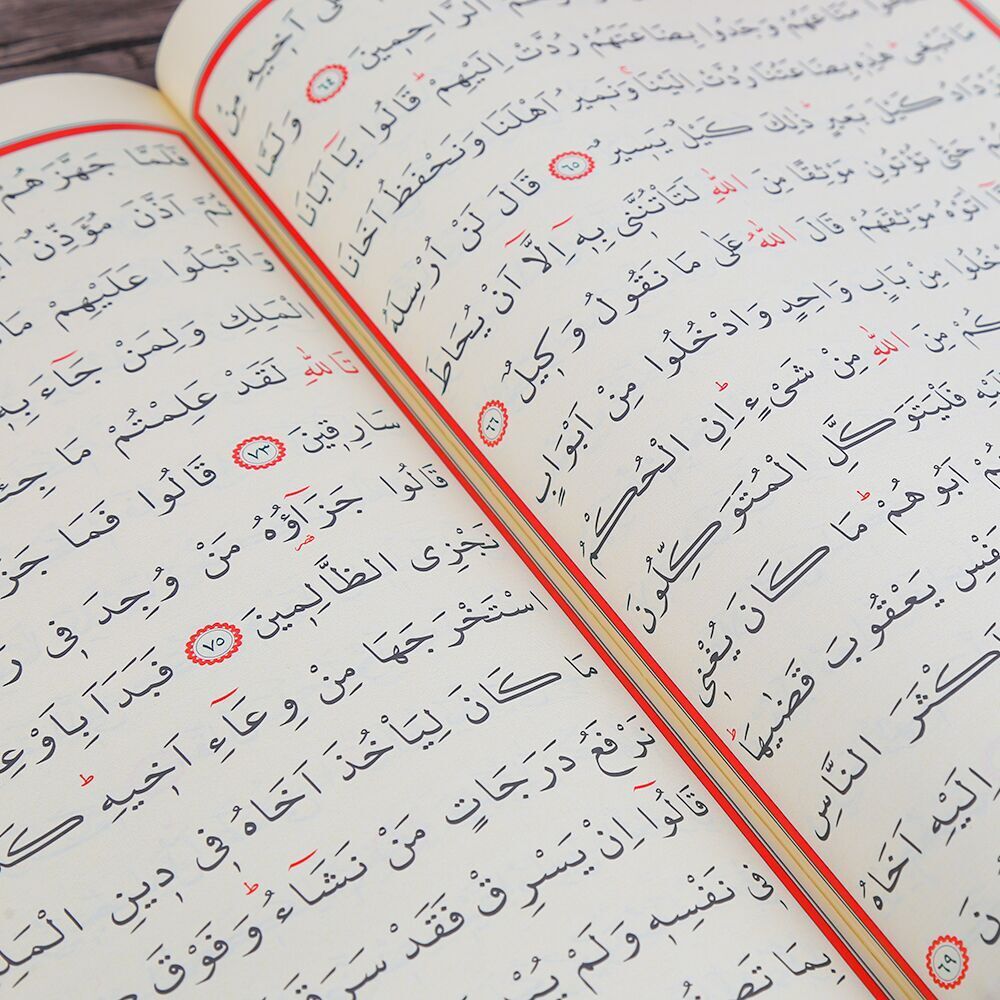 اَخِيهِ مِنْ
الرَّاحِمِينَ ﴿٦٤﴾ وَلَمَّا
مَتَاعَهُمْ وَجَدُوا بِضَاعَتَهُمْ رُدَّتْ اِلَيْهِمْ قَالُوا يَٓا اَبَانَا
مَا نَبْغِى هٰذِهِ بِضَاعَتُنَا رُدَّتْ اِلَيْنَا وَنَمِيرُ اَهْلَنَا وَنَحْفَظُ اَخَانَا
كَيْلَ بَعِيرٍ ذٰلِكَ كَيْلٌ يَسِيرٌ ﴿٦٥﴾ قَالَ لَنْ اُرْسِلَهُ
حَتّٰى تُؤْتُونِ مَوْثِقًا مِنَ اللّٰهِ لَتَأْتُنَّنِى بِهِٓ اِلَّٓا اَنْ يُحَاطَ
اٰتَوْهُ مَوْثِقَهُمْ قَالَ اللّٰهُ عَلٰى مَا نَقُولُ وَكِيلٌ ﴿٦٦﴾
مِنْ بَابٍ وَاحِدٍ وَادْخُلُوا مِنْ اَبْوَابٍ
مِنَ اللّٰهِ مِنْ شَىْءٍ اِنِ الْحُكْمُ
فَلْيَتَوَكَّلِ الْمُتَوَكِّلُونَ
اَبُوهُمْ مَا كَانَ يُغْنِى
يَعْقُوبَ قَضٰيهَا
اَكْثَرَ النَّاسِ
اِلَيْهِ اَخَاهُ
﴿٦٩﴾
فَلَمَّا جَهَّزَهُمْ
ثُمَّ اَذَّنَ مُؤَذِّنٌ
وَاَقْبَلُوا عَلَيْهِمْ
الْمَلِكِ وَلِمَنْ جَٓاءَ بِهِ
تَاللّٰهِ لَقَدْ عَلِمْتُمْ مَا
سَارِقِينَ ﴿٧٣﴾ قَالُوا فَمَا
قَالُوا جَزَٓاؤُهُ مَنْ وُجِدَ فِى
نَجْزِى الظَّالِمِينَ ﴿٧٥﴾ فَبَدَاَ
اسْتَخْرَجَهَا مِنْ وِعَٓاءِ اَخِيهِ
مَا كَانَ لِيَأْخُذَ اَخَاهُ فِى دِينِ
نَرْفَعُ دَرَجَاتٍ مَنْ نَشَٓاءُ وَفَوْقَ
قَالُٓوا اِنْ يَسْرِقْ فَقَدْ سَرَقَ
فِى نَفْسِهِ وَلَمْ
بِمَا